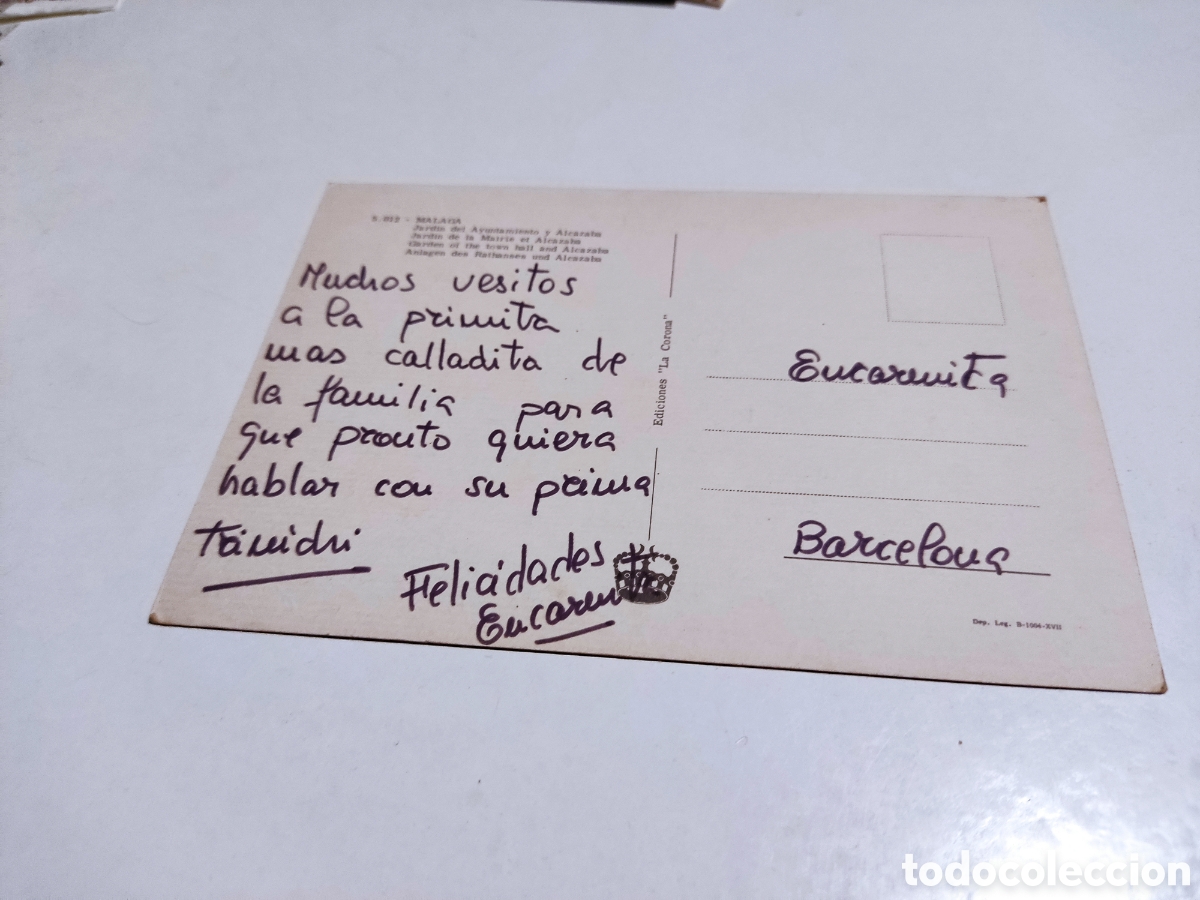 S. 012 - MALAGA
Jardín del Ayuntamiento y Alcazaba
Jardin de la Mairie et Alcazaba
Garden of the town hall and Alcazaba
Anlagen des Rathauses und Alcazaba
Muchos vesitos
a la primita
mas calladita de
la familia para
que pronto quiera
hablar con su prima
Felicidades
Encarnita
Ediciones "La Corona"
Encarnita
Barcelona
Dep. Leg. B-1064-XVII
todocoleccion